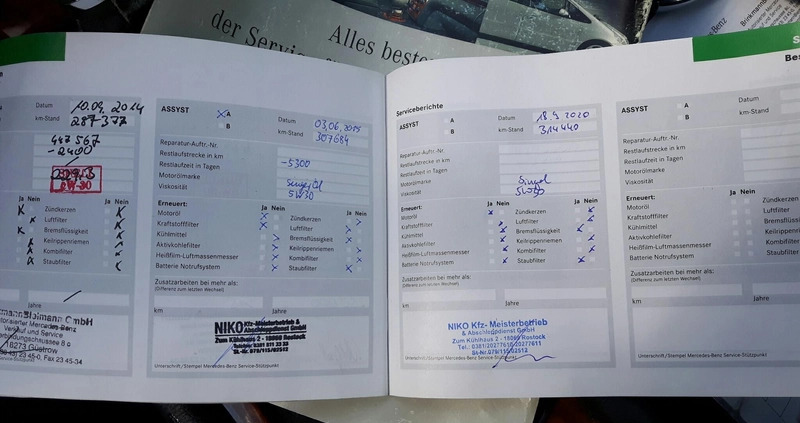 Alles beste
der Serv
Benz
Brinkmann
Datum 10.09.2014
km-Stand 287 377
447 567
-2400
Ja Nein
Zündkerzen
Luftfilter
Bremsflüssigkeit
Keilrippenriemen
Kombifilter
Staubfilter
Jahre
mannBleimann GmbH
torisierter Mercedes-Benz
Verkauf und Service
18273 Güstrow
23 45-0, Fax 23 45-34
ASSYST A
B
Datum 03.06.2015
km-Stand 307684
Reparatur-Auftr.-Nr.
Restlaufstrecke in km
Restlaufzeit in Tagen -5300
Motorölmarke
Viskosität 5W30
Erneuert: Ja Nein Ja Nein
Motoröl Zündkerzen
Kraftstofffilter Luftfilter
Kühlmittel Bremsflüssigkeit
Aktivkohlefilter Keilrippenriemen
Heißfilm-Luftmassenmesser Kombifilter
Batterie Notrufsystem Staubfilter
Zusatzarbeiten bei mehr als:
(Differenz zum letzten Wechsel)
km Jahre
NIKO Kfz-Meisterbetrieb &
Abschleppdienst GmbH
Zum Kühlhaus 2 - 18069 Rostock
St.-Nr. 079/115/02512
Unterschrift/Stempel Mercedes-Benz Service-Stützpunkt
Serviceberichte
ASSYST A
B
Datum 18.9.2020
km-Stand 314440
Reparatur-Auftr.-Nr.
Restlaufstrecke in km
Restlaufzeit in Tagen
Motorölmarke
Viskosität
Erneuert: Ja Nein Ja Nein
Motoröl Zündkerzen
Kraftstofffilter Luftfilter
Kühlmittel Bremsflüssigkeit
Aktivkohlefilter Keilrippenriemen
Heißfilm-Luftmassenmesser Kombifilter
Batterie Notrufsystem Staubfilter
Zusatzarbeiten bei mehr als:
(Differenz zum letzten Wechsel)
km Jahre
NIKO Kfz- Meisterbetrieb
& Abschleppdienst GmbH
Zum Kühlhaus 2 - 18069 Rostock
Tel.: 0381/20277610/20277611
St-Nr.079/115/02512
Unterschrift/Stempel Mercedes-Benz Service-Stützpunkt
S
Bes
ASSYST A
B
Datum
km-Stand
Reparatur-Auftr.-Nr.
Restlaufstrecke in km
Restlaufzeit in Tagen
Motorölmarke
Viskosität
Erneuert: Ja Nein
Motoröl Zündkerzen
Kraftstofffilter Luftfilter
Kühlmittel
Aktivkohlefilter
Heißfilm-Luftmassenmesser
Batterie Notrufsystem
Zusatzarbeiten bei mehr als:
(Differenz zum letzten Wechsel)
km
Unterschrift/Stempel Mercedes-Benz Service-Stützpunkt